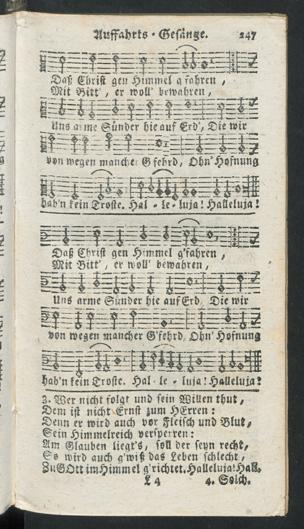 Auffahrts-Gesänge. 247
Daß Christ gen Himmel g'fahren,
Mit Bitt', er woll' bewahren,
Uns arme Sünder hie auf Erd', Die wir
von wegen mancher G'fehrd, Ohn' Hofnung
hab'n kein Troste. Hal-le-luja! Halleluja!
Daß Christ gen Himmel g'fahren,
Mit Bitt', er woll' bewahren,
Uns arme Sünder hie auf Erd, Die wir
von wegen mancher G'fehrd, Ohn' Hofnung
hab'n kein Troste. Hal-le-luja! Halleluja!
3. Wer nicht folgt und sein Willen thut,
Dem ist nicht Ernst zum HErren:
Denn er wird auch vor Fleisch und Blut,
Sein Himmelreich versperren:
Am Glauben liegt's, soll der seyn recht,
So wird auch g'wiß das Leben schlecht,
Zu GOtt im Himmel g'richtet. Halleluja! Hall.
L 4 4. Solch.